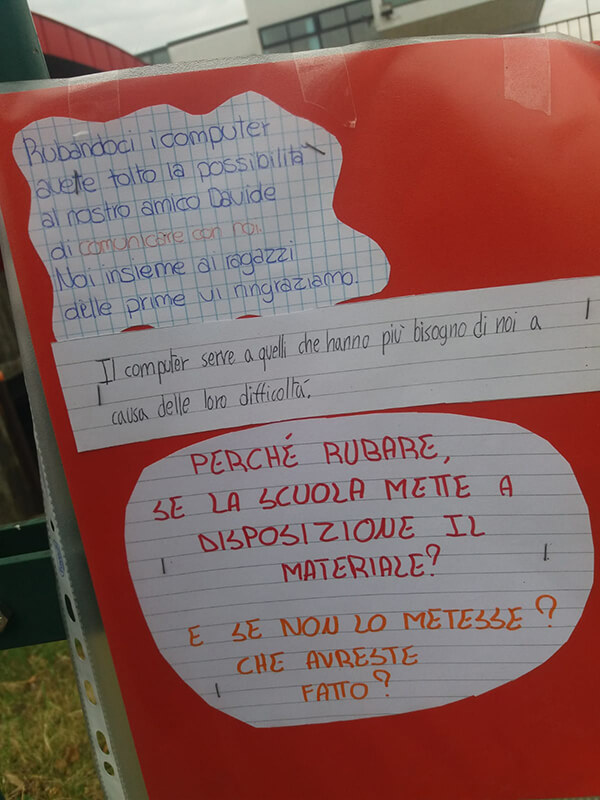 Rubandoci i computer
avete tolto la possibilità
al nostro amico Davide
di comunicare con noi.
Noi insieme ai ragazzi
delle prime vi ringraziamo.
Il computer serve a quelli che hanno più bisogno di noi a
causa delle loro difficoltà.
PERCHÉ RUBARE,
SE LA SCUOLA METTE A
DISPOSIZIONE IL
MATERIALE?
E SE NON LO METESSE?
CHE AVRESTE
FATTO?